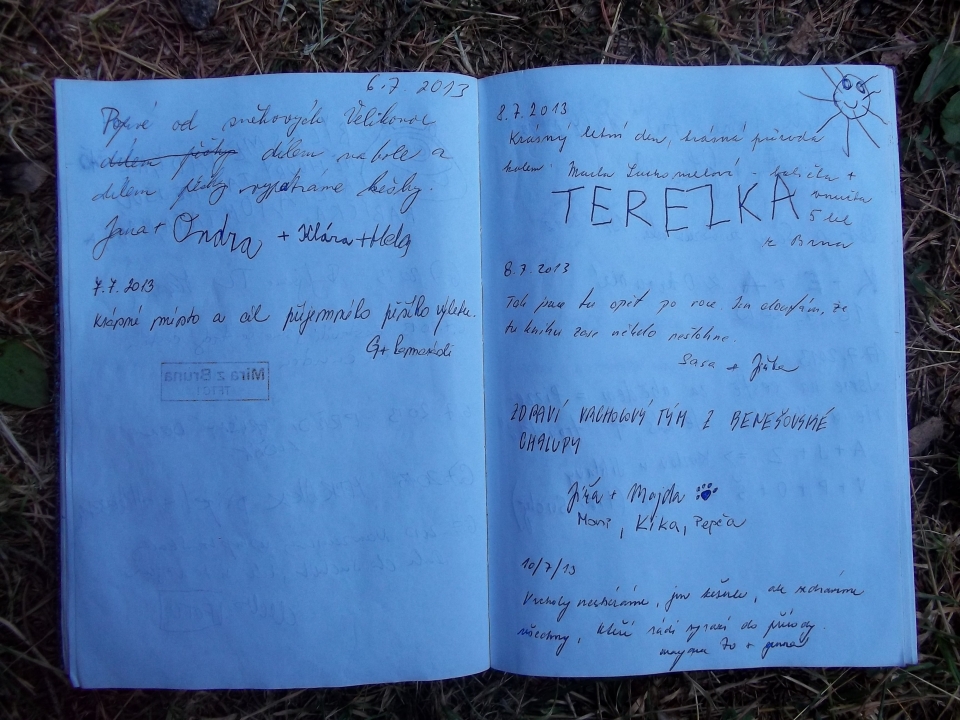 6.7. 2013
Poprvé od sněhových Velikonoc
dílem pěšky dílem na kole a
dílem pěšky vypátráme kešky.
Jana + Ondra + Klára + Hela
7.7.2013
Krásné místo a cíl příjemného pěšího výletu.
G+
Mira z Bruna
8.7.2013
Krásný letní den, krásná příroda
kolem. babička +
TEREZKA vnučka
5 let
z Brna
8.7.2013
Tak jsme tu opět po roce. Jen doufám, že
tu knihu zase někdo neštohne.
Sasa + Jiřka
ZDRAVÍ VRCHOLOVÝ TÝM Z BENEŠOVSKÉ
CHALUPY
Jiřa + Majda
Kika, Pepča
10/7/13
Vrcholy nesbíráme, jen kešule, ale zdravíme
všechny, kteří rádi vyrazí do přírody.